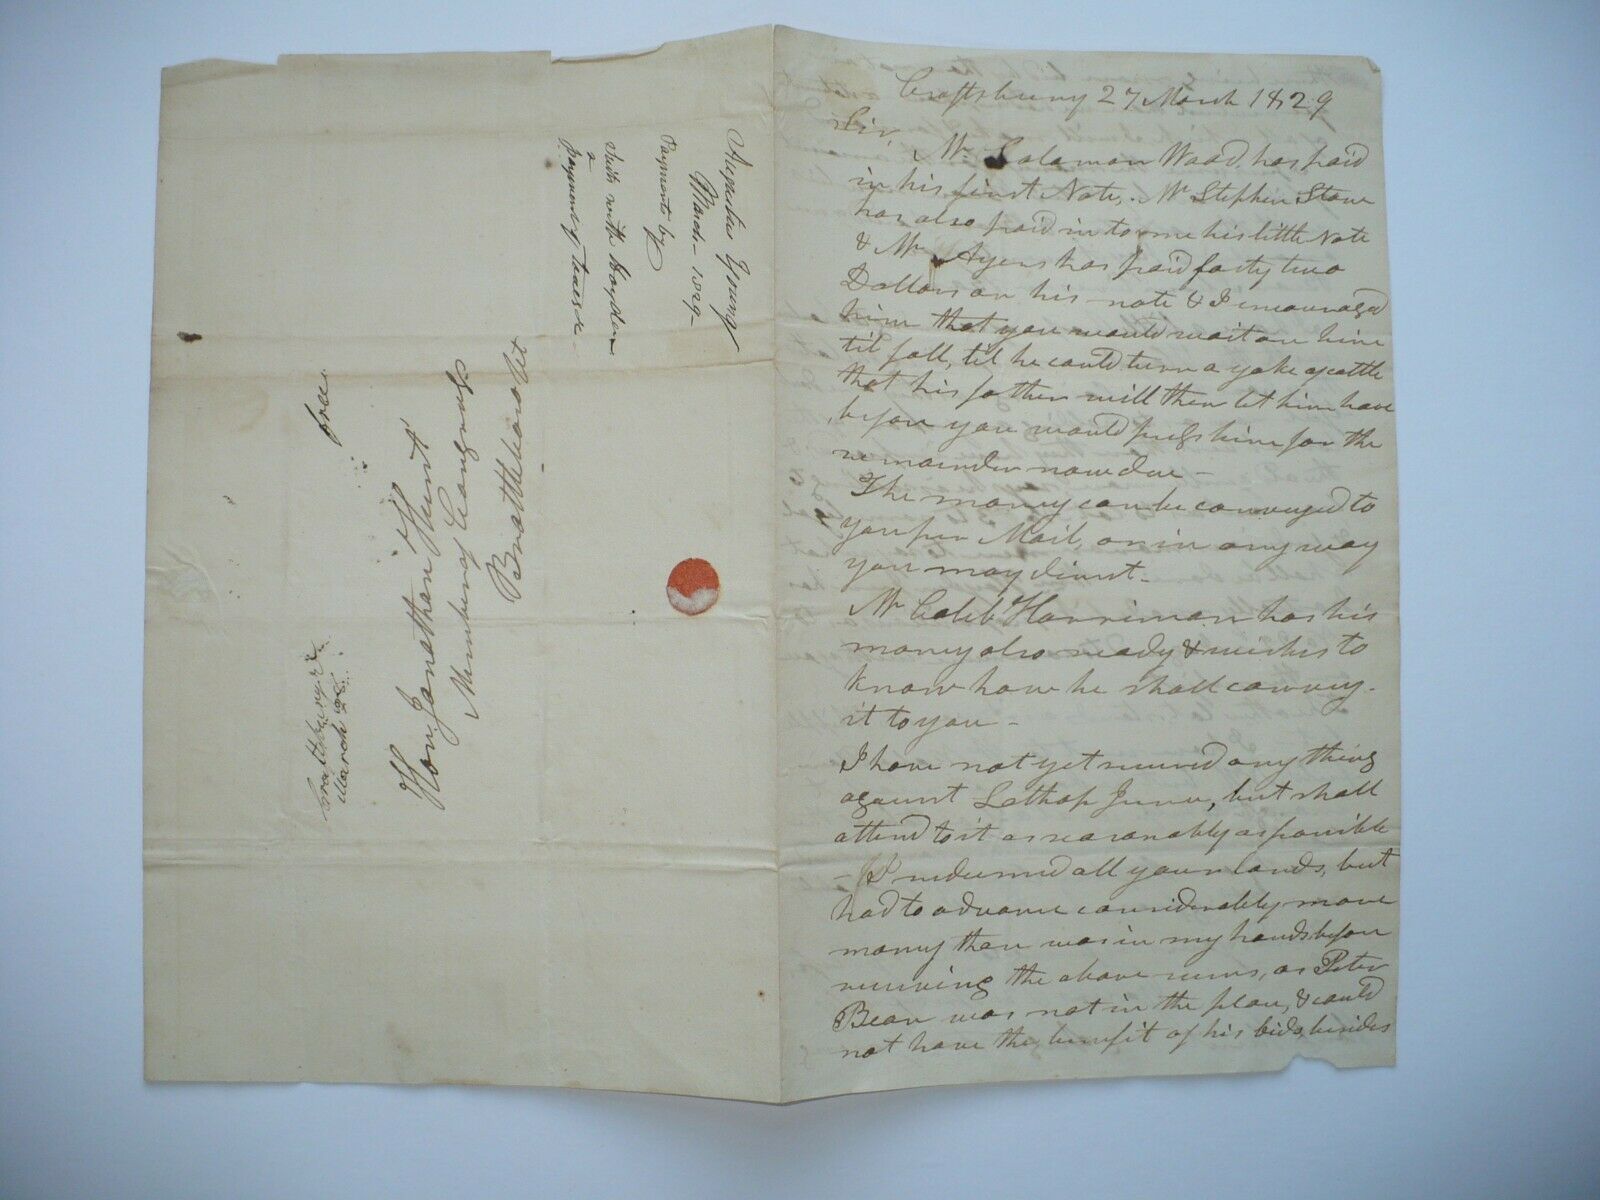 Craftsbury 27 March 1829
Sir,
Mr Solomon Wood has paid
in his first Note, Mr Stephen Stone
has also paid in to me his little Note
& Mr Ayers has paid forty two
Dollars on his note & I encouraged
him that you would wait on him
til fall, til he could turn a yoke of cattle
that his father will then let him have
before you would push him for the
remainder now due -
The money can be conveyed to
you per Mail, or in any way
you may direct -
Mr Caleb Harriman has his
money also ready & wishes to
know how he shall convey
it to you -
I have not yet received any thing
against Lothop June, but shall
attend to it as reasonably as possible
- I redeemed all your lands, but
had to advance considerably more
money than was in my hands before
receiving the above sums, as Peter
Bean was not in the place, & could
not have the benefit of his bids, besides
Augustus Young
March - 1829 -
Payments by
Suits with Hayden
&
payment of taxes &c
free
Hon Jonathan Hunt
Member of Congress
Brattleboro Vt
Craftsbury Vt
March 28